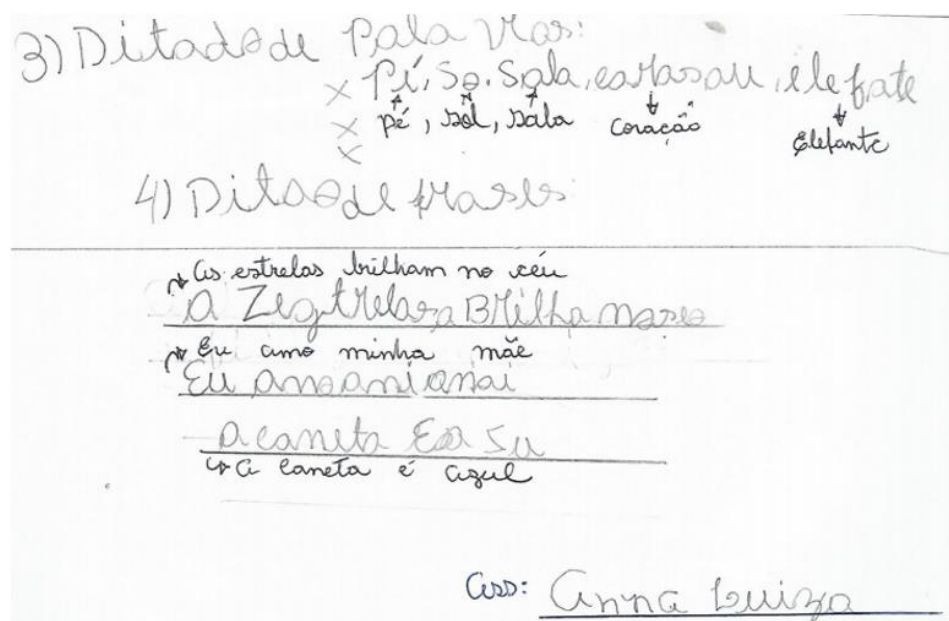 3) Ditado de Pala vras:
Pí, So. Sala, carasau, ele fate
Pé, sol, sala coração Elefante
4) Ditaode frases:
As estrelas brilham no céu
A Zegtrelasa Brilha naseo
Eu amo minha mãe
Eu amoamianai
A caneta Ea Su
A caneta é azul
Ass: Anna Luiza